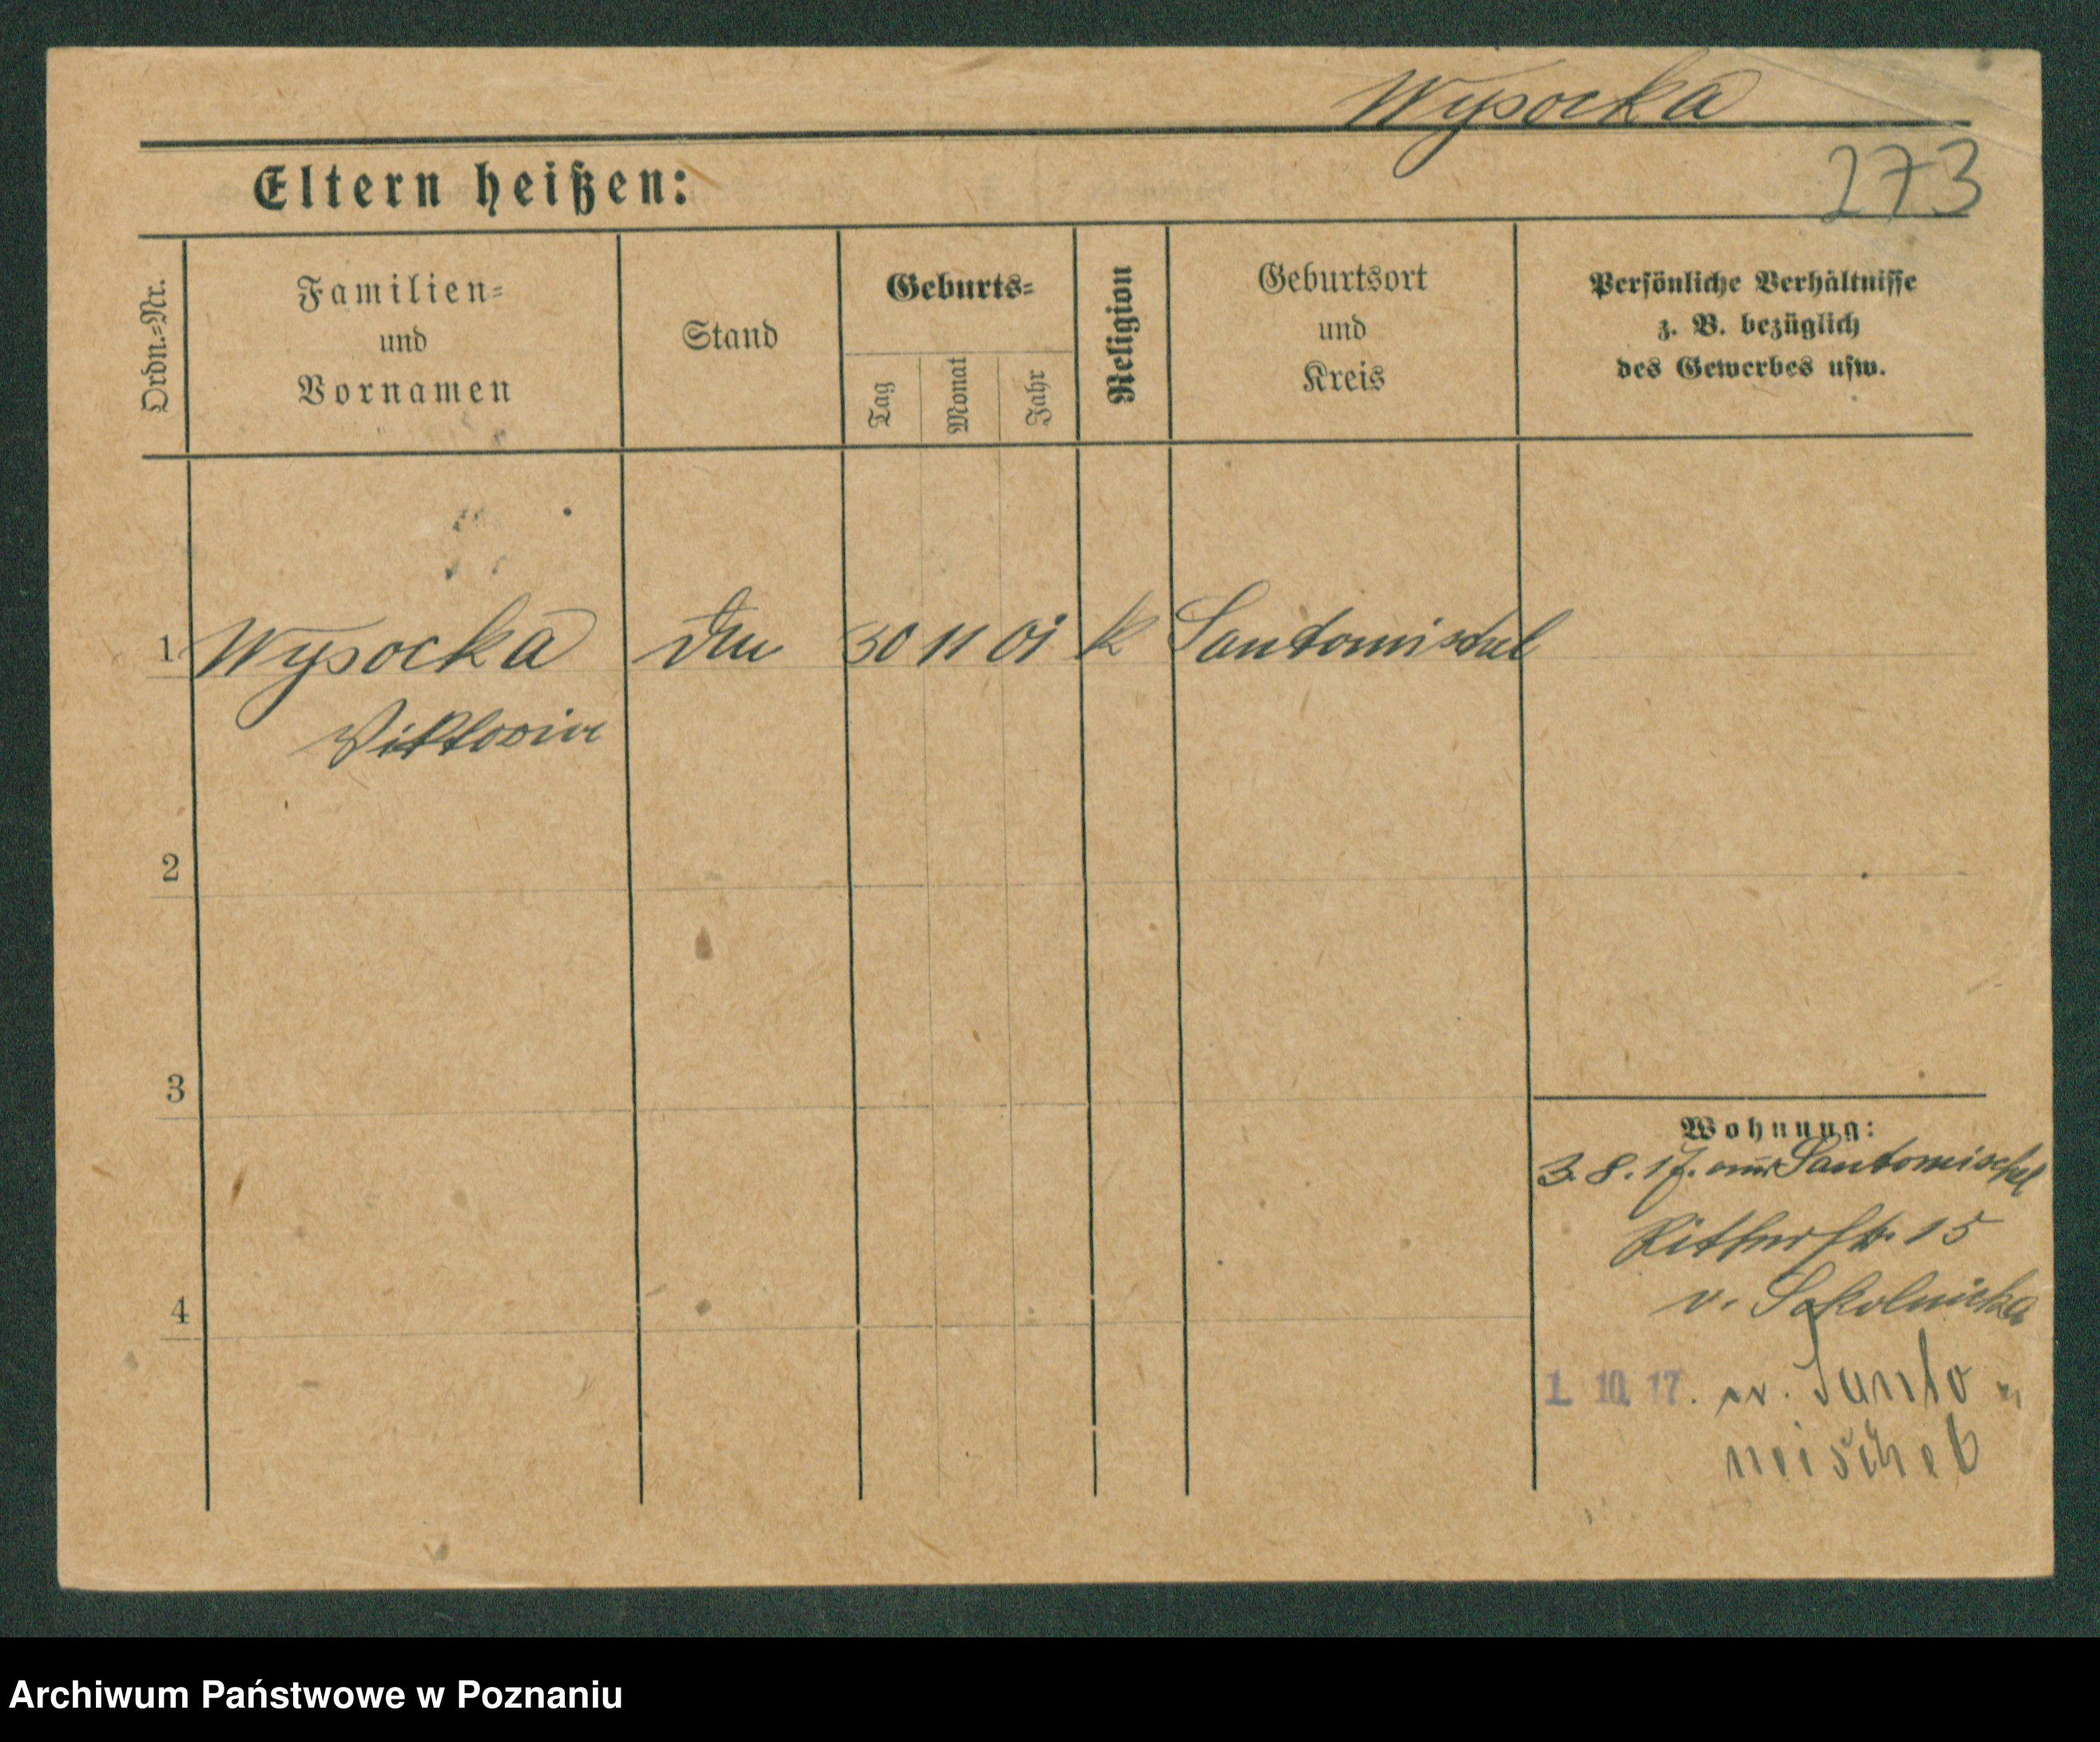 Wysocka
Eltern heißen:
273
Ordn.=Nr.
Familien=
und
Vornamen
Stand
Geburts=
Tag
Monat
Jahr
Religion
Geburtsort
und
Kreis
Persönliche Verhältnisse
z. B. bezüglich
des Gewerbes usw.
1 Wysocka 30 11 01 K Santomischel
Viktoria
2
3
4
Wohnung:
3.8.17. aus Santomischel
Ritterstr. 15
v. Sokolnicka
1. 10. 17. n. Santo=
mischel
Archiwum Państwowe w Poznaniu